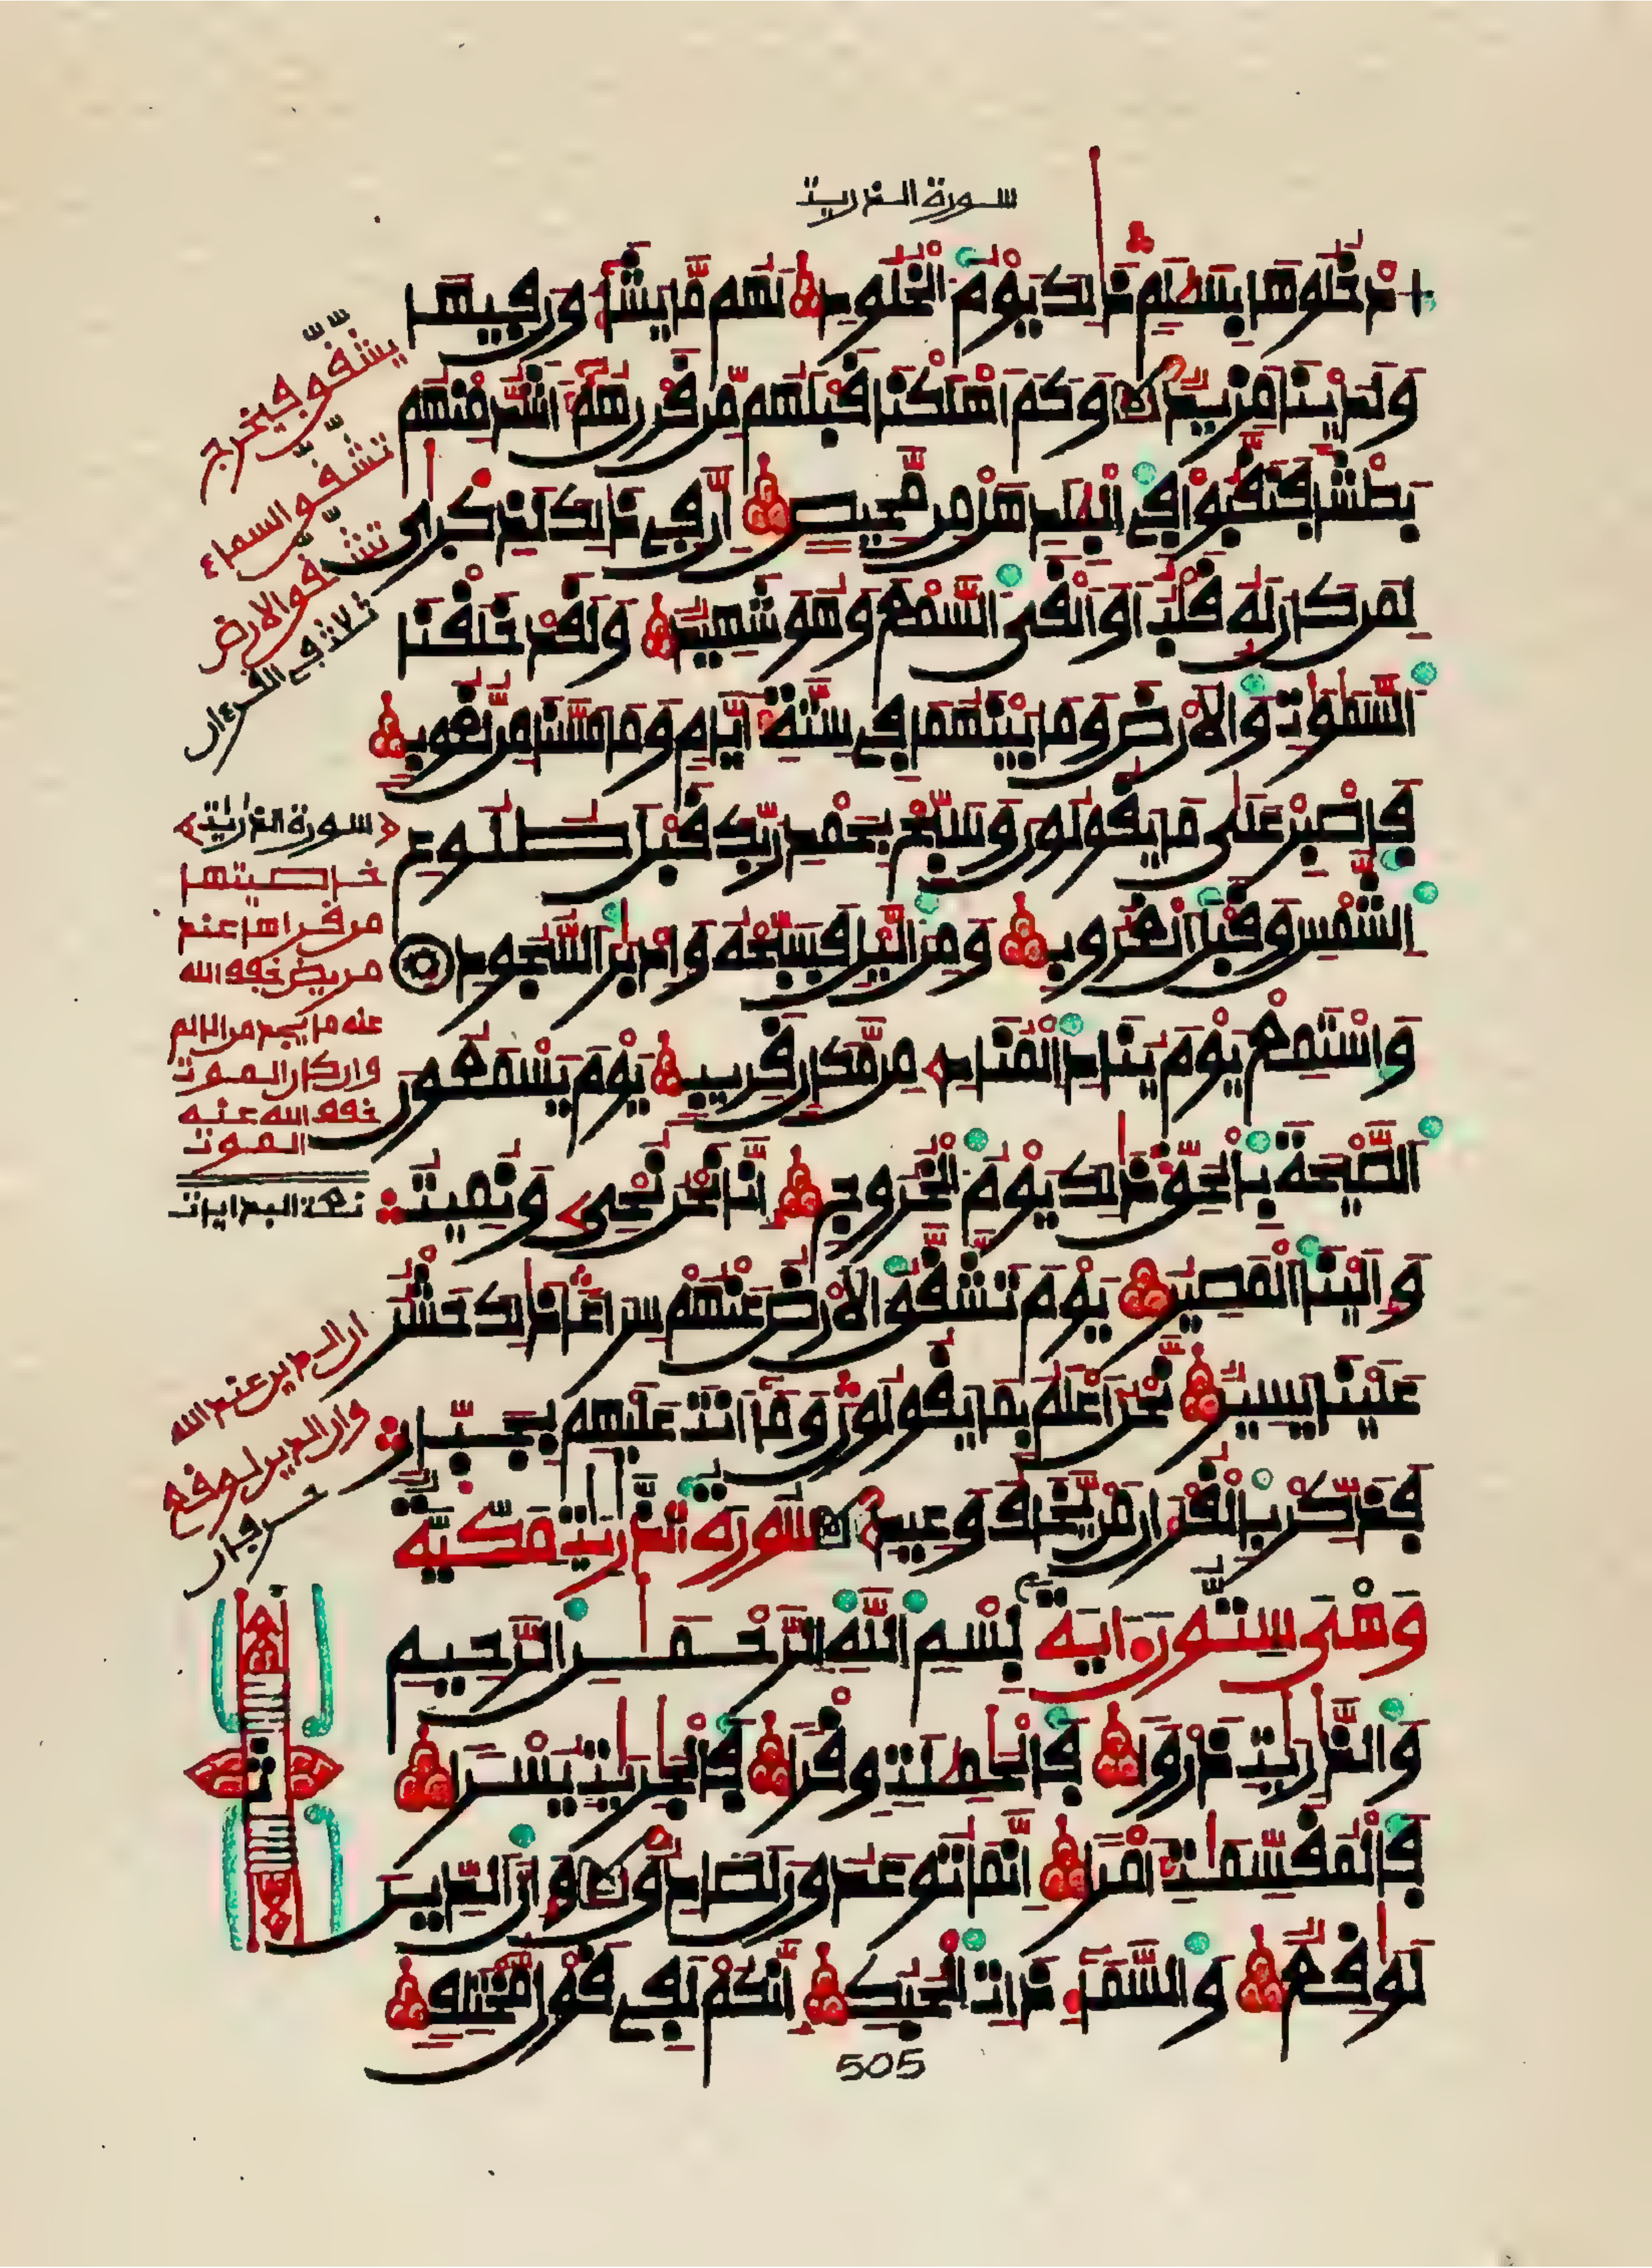 سورة الذريت
ادخلوها بسلم ذلك يوم الخلود لهم ما يشاءون فيها
ولدينا مزيد وكم اهلكنا قبلهم من قرن هم اشد منهم
بطشا فنقبوا في البلد هل من محيص ان في ذلك لذكرى
لمن كان له قلب او القى السمع وهو شهيد ولقد خلقنا
السموات والارض وما بينهما في ستة ايام وما مسنا من لغوب
فاصبر على ما يقولون وسبح بحمد ربك قبل طلوع
الشمس وقبل الغروب ومن اليل فسبحه وادبر السجود
واستمع يوم يناد المناد من مكان قريب يوم يسمعون
الصيحة بالحق ذلك يوم الخروج انا نحن نحي ونميت
والينا المصير يوم تشقق الارض عنهم سراعا ذلك حشر
علينا يسير نحن اعلم بما يقولون وما انت عليهم بجبار
فذكر بالقرءان من يخاف وعيد سورة الذريت مكية
وهى ستون ءاية بسم الله الرحمن الرحيم
والذريت ذروا فالحملت وقرا فالجريت يسرا
فالمقسمت امرا انما توعدون لصادق وان الدين
لوقع والسماء ذات الحبك انكم لفي قول مختلف
505
يشقق فيخرج
تشقق السماء
تشقق الارض
ثلاث في القرءان
سورة الذريت
خاصيتها
من قراها عند
مريض خفف الله
عنه ما يجد من الالم
وان كان الموت
خفف الله عنه
الموت
ان الدين عند الله
وان الدين لوقع
حرفان
ثمن